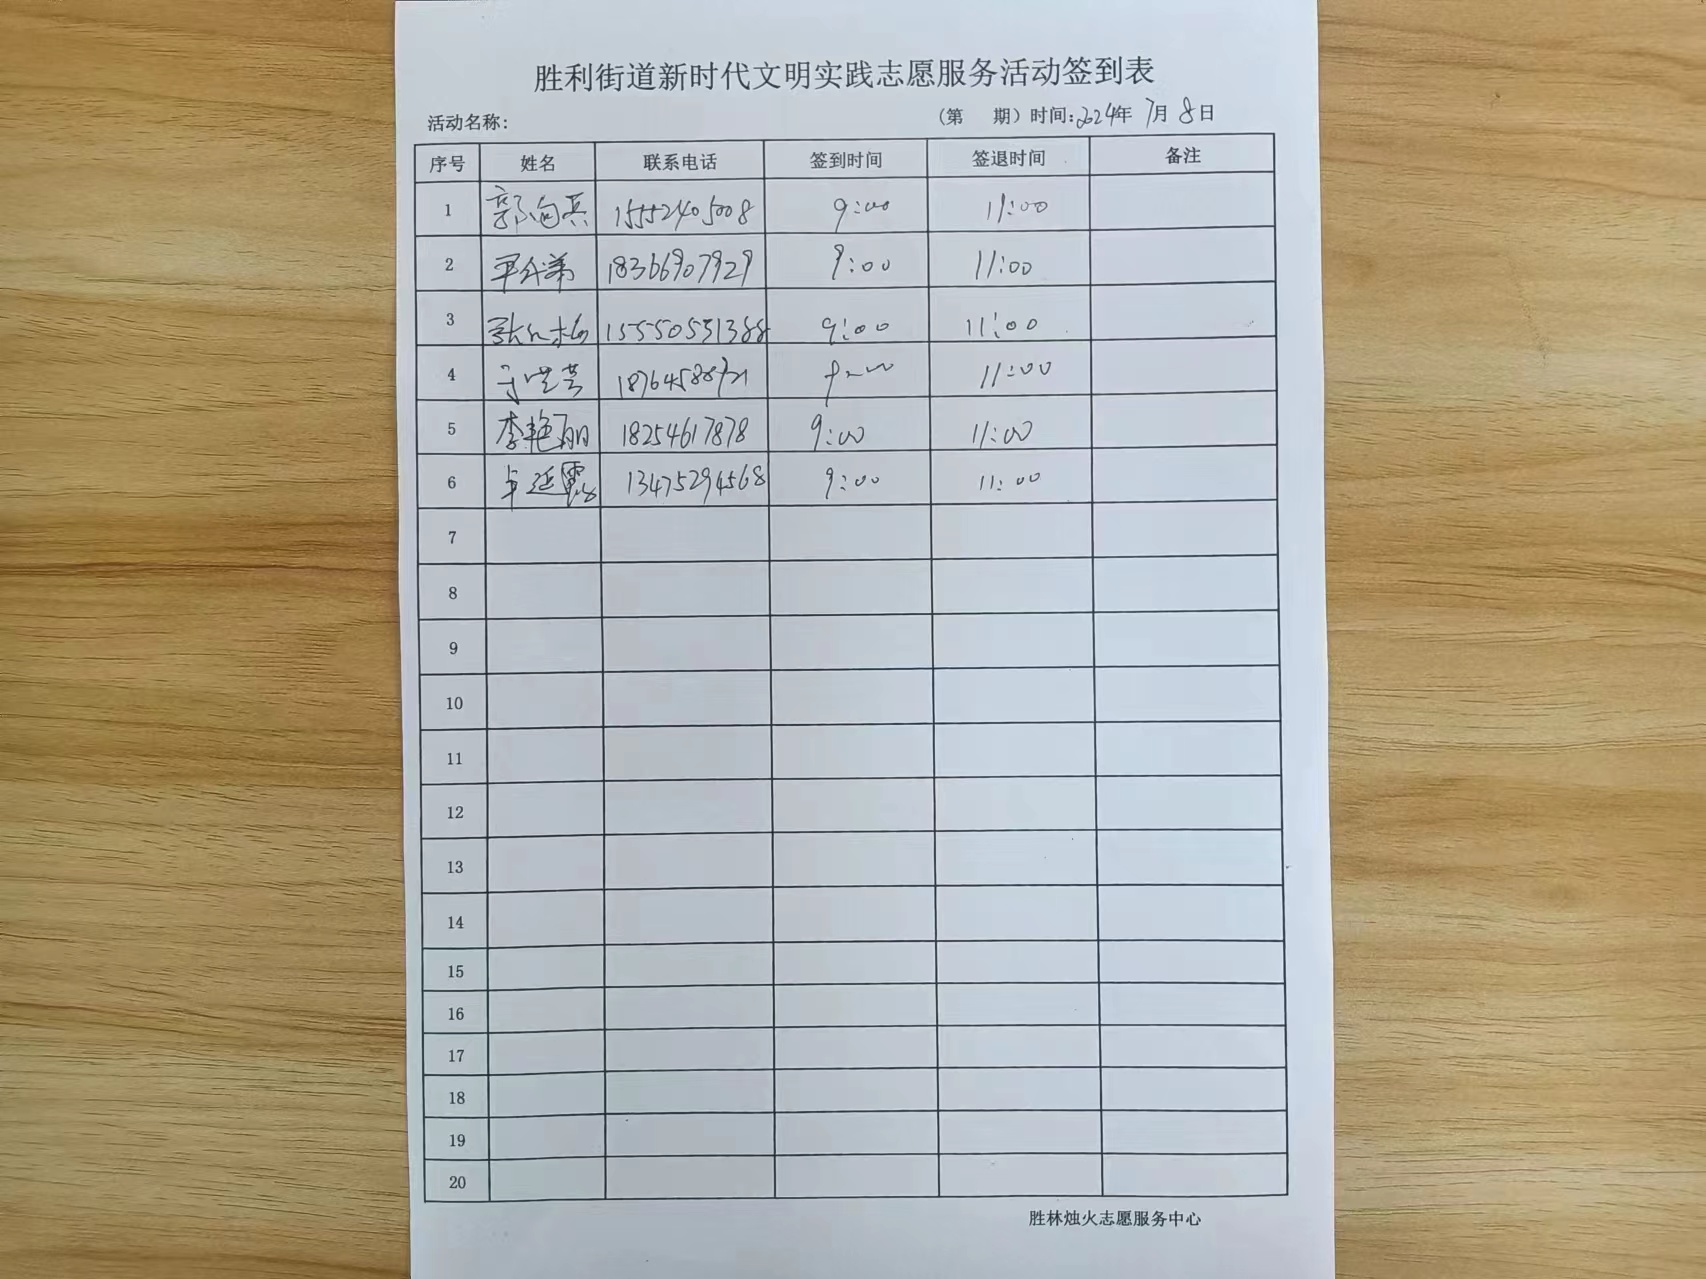 胜利街道新时代文明实践志愿服务活动签到表
活动名称: (第 期) 时间:2024年 7月 8日
序号 姓名 联系电话 签到时间 签退时间 备注
1 郭向英 15552405008 9:00 11:00
2 18366907929 9:00 11:00
3 15550551388 9:00 11:00
4 9:00 11:00
5 李艳丽 18254617878 9:00 11:00
6 卓延霞 13475294568 9:00 11:00
7
8
9
10
11
12
13
14
15
16
17
18
19
20
胜林烛火志愿服务中心